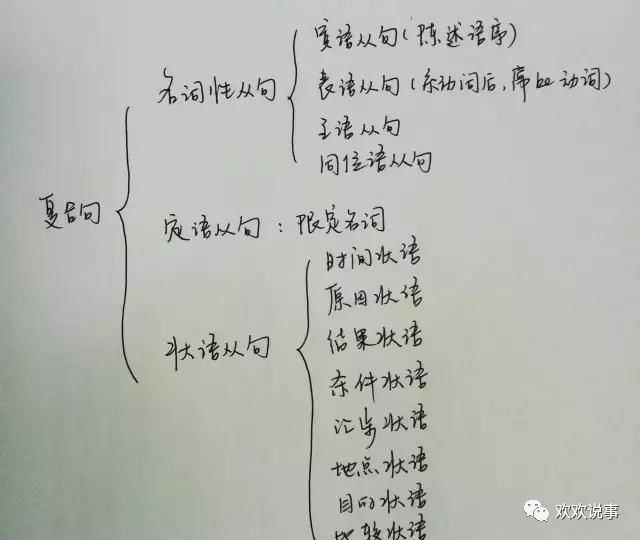 复合句
名词性从句
宾语从句(陈述语序)
表语从句(系动词后,常be动词)
主语从句
同位语从句
定语从句:限定名词
状语从句
时间状语
原因状语
结果状语
条件状语
让步状语
地点状语
目的状语
比较状语
欢欢说事